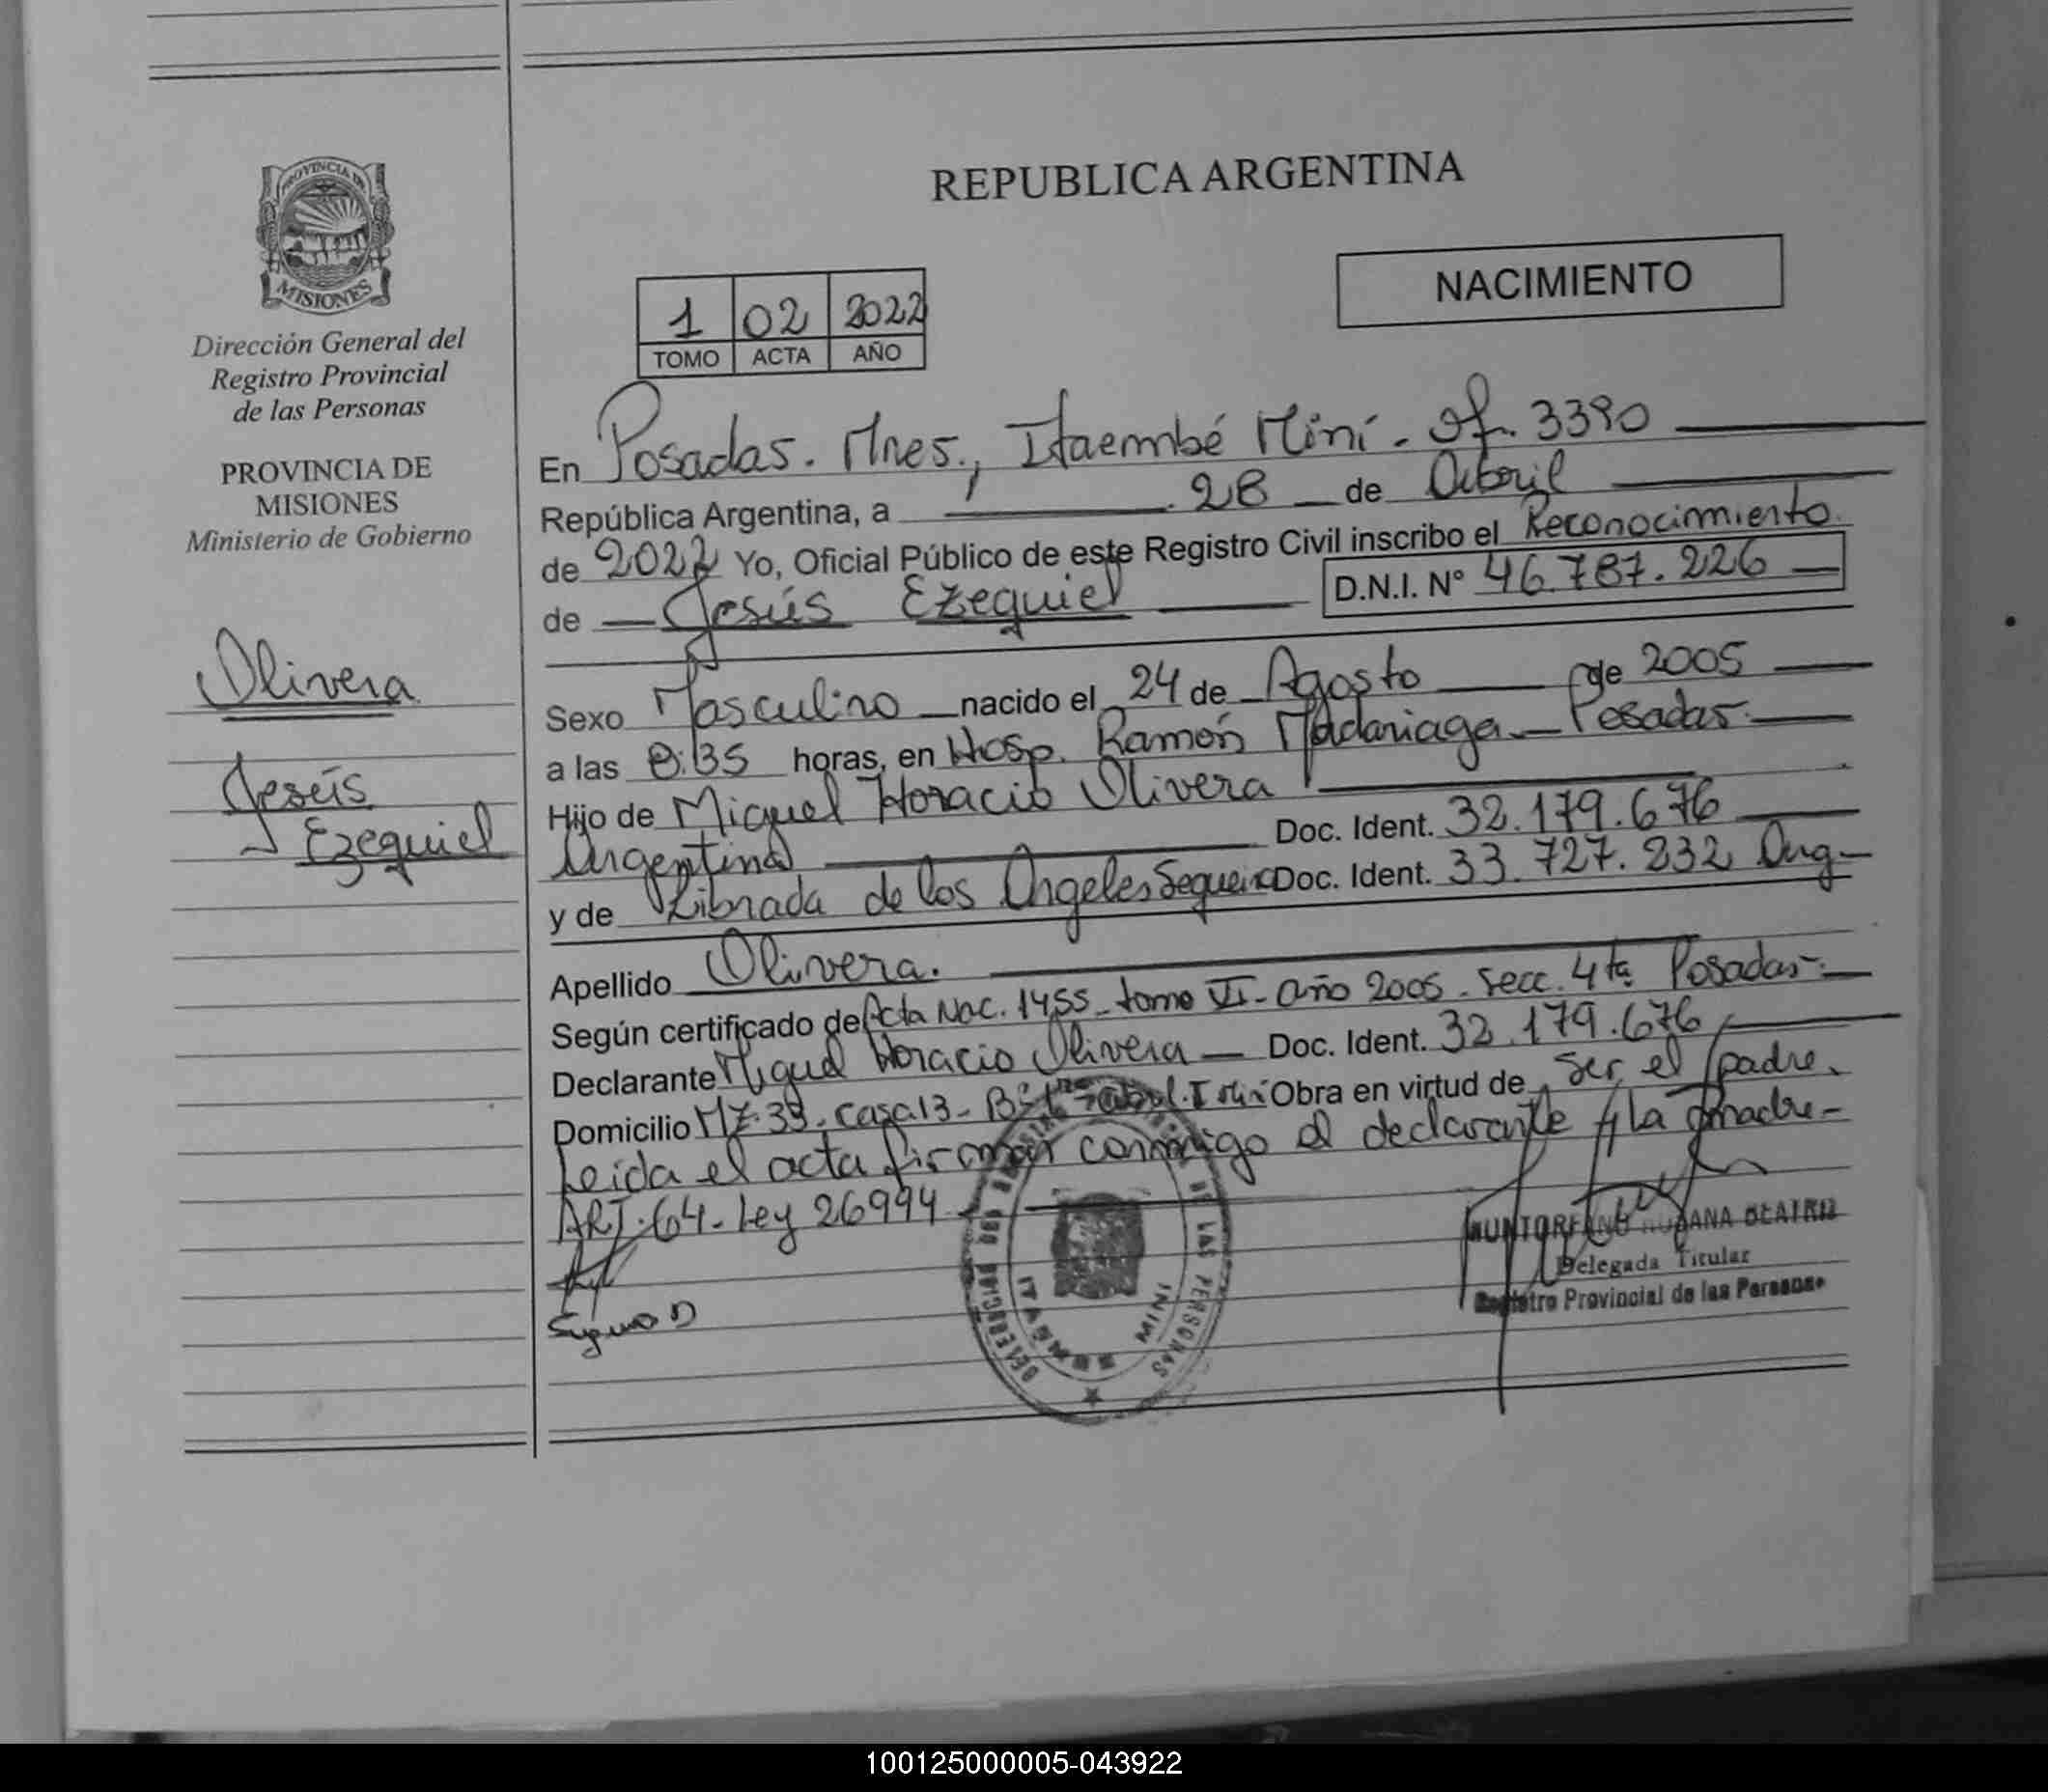 REPUBLICA ARGENTINA
NACIMIENTO
1 02 2022
TOMO ACTA AÑO
PROVINCIA DE
MISIONES
Dirección General del
Registro Provincial
de las Personas
PROVINCIA DE
MISIONES
Ministerio de Gobierno
Olivera
Jesús
Ezequiel
En Posadas. Mnes., Itaembé Miní - Of. 3390
República Argentina, a 28 de Abril
de 2022 Yo, Oficial Público de este Registro Civil inscribo el Reconocimiento
de Jesús Ezequiel D.N.I. N° 46.787.226
Sexo Masculino nacido el 24 de Agosto de 2005
a las 8:35 horas, en Hosp. Ramón Madariaga - Posadas.
Hijo de Miguel Horacio Olivera
Argentina Doc. Ident. 32.179.676
y de Librada de los Angeles Sequeira Doc. Ident. 33.727.232 Arg-
Apellido Olivera.
Según certificado de Acta Nac. 1455 - tomo VI - Año 2005 - Secc. 4ta Posadas-
Declarante Miguel Horacio Olivera - Doc. Ident. 32.179.676
Domicilio Mz. 33, casa 13 - Obra en virtud de ser el padre.
Leida el acta firman conmigo el declarante y la madre-
ART. 64 - Ley 26994
RUXANA BEATRIZ
Delegada Titular
Registro Provincial de las Personas
DE LAS PERSONAS
MINI
100125000005-043922